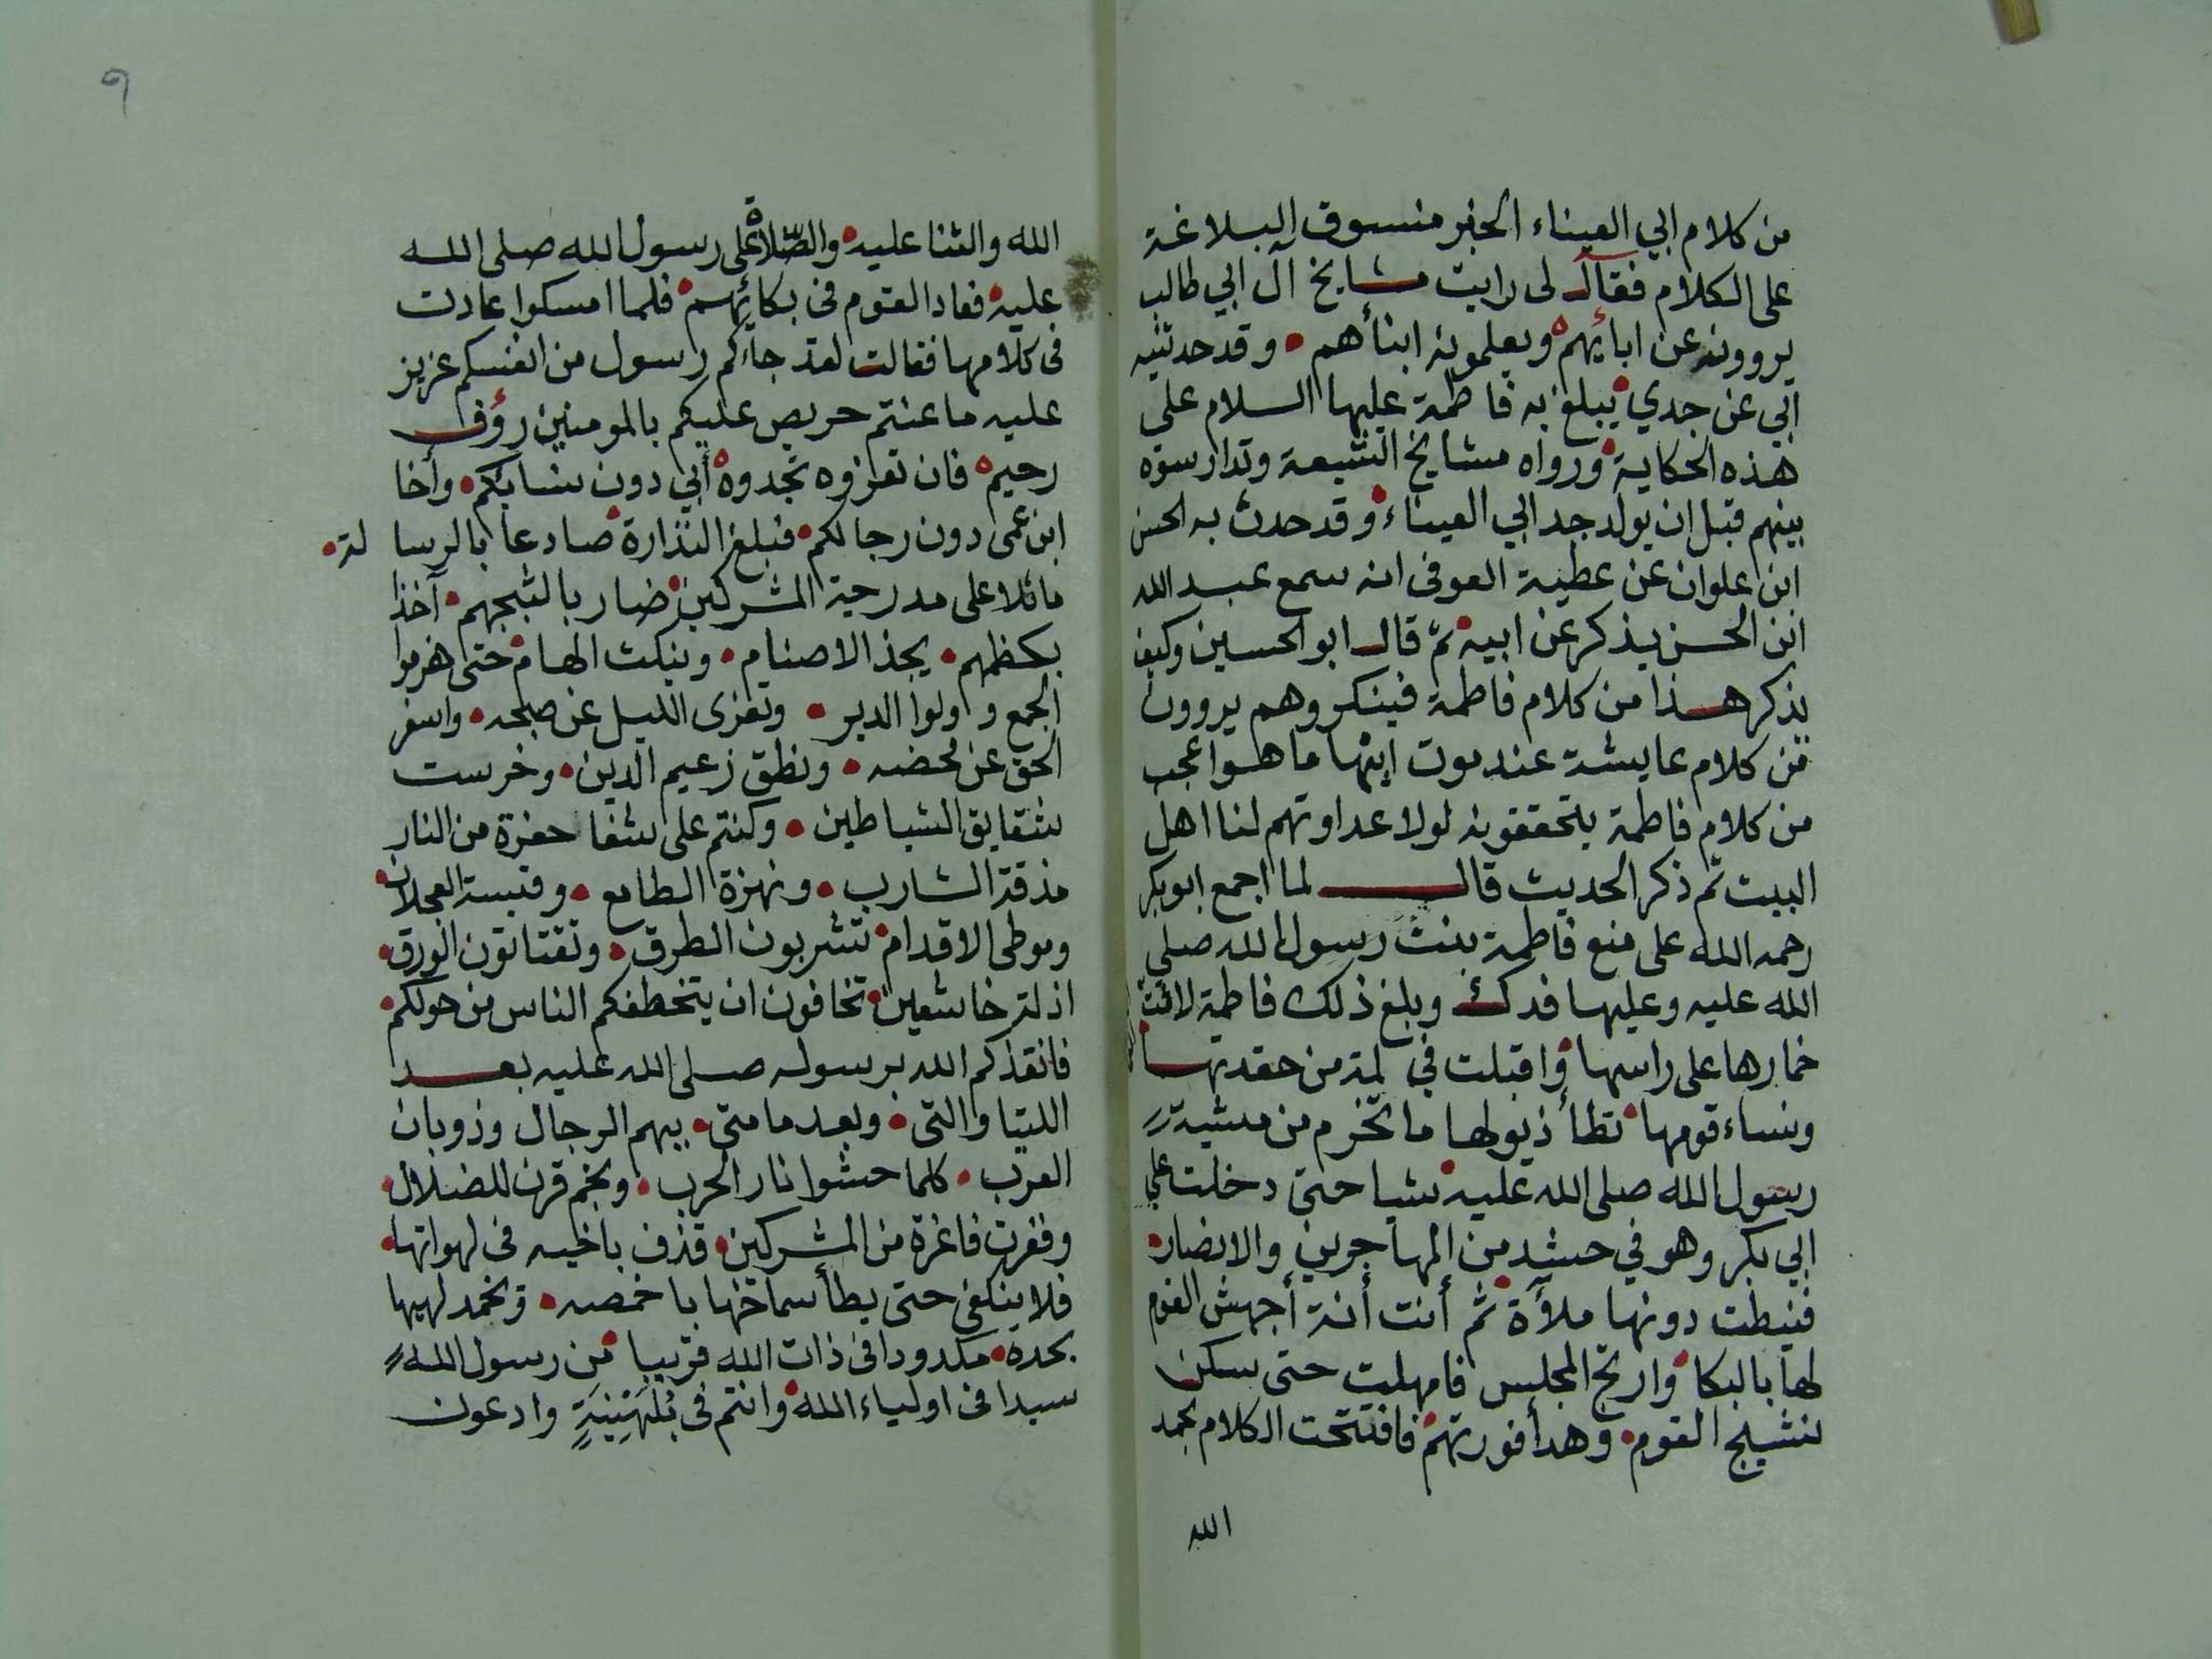 من كلام ابي العيناء الخبر منسوق البلاغة
على الكلام فقال لى رايت مشايخ آل ابي طالب
يروونه عن ابائهم ويعلمونه ابنأهم وقد حدثنيه
ابي عن جدي يبلغ به فاطمة عليها السلام على
هذه الحكاية ورواه مشايخ الشيعة وتدارسوه
بينهم قبل ان يولد جد ابي العيناء وقد حدث به الحسن
ابن علوان عن عطية العوفى انه سمع عبد الله
ابن الحسن يذكر عن ابيه ثم قال ابو الحسين وكيف
يذكر هذا من كلام فاطمة فينكر وهم يروون
من كلام عايشة عند موت ابيها ما هو اعجب
من كلام فاطمة يتحققونه لولا عداوتهم لنا اهل
البيت ثم ذكر الحديث قال لما اجمع ابو بكر
رحمه الله على منع فاطمة بنت رسول الله صلى
الله عليه وعليها فدك وبلغ ذلك فاطمة لاثت
خمارها على راسها واقبلت في لمة من حفدتها
ونساء قومها تطأ ذيولها ما تخرم من مشية
رسول الله صلى الله عليه شيا حتى دخلت على
ابي بكر وهو في حشد من المهاجرين والانصار
فنيطت دونها ملأة ثم أنت أنة أجهش القوم
لها بالبكا وارتج المجلس فامهلت حتى سكن
نشيج القوم وهدأ فورتهم فافتتحت الكلام بحمد
الله
٩
الله والثنا عليه والصّلاة على رسول الله صلى الله
عليه فعاد القوم فى بكائهم فلما امسكوا عادت
فى كلامها فقالت لقد جاءكم رسول من انفسكم عزيز
عليه ما عنتم حريص عليكم بالمومنين رؤف
رحيم فان تعزوه تجدوه أبي دون نسايكم وأخا
ابن عمى دون رجالكم فبلغ النذارة صادعا بالرسالة
مائلا على مدرجة المشركين ضاربا لثبجهم آخذا
بكظمهم يجذ الاصنام وينكث الهام حتى هزموا
الجمع واولوا الدبر وتفرى الليل عن صبحه واسفر
الحق عن محضه ونطق زعيم الدين وخرست
شقايق الشياطين وكنتم على شفا حفرة من النار
مذقة الشارب ونهزة الطامع وقبسة العجلان
وموطى الاقدام تشربون الطرق وتقتاتون الورق
اذلة خاشعين تخافون ان يتخطفكم الناس من حولكم
فانقذكم الله برسوله صلى الله عليه بعد
اللتيا والتى وبعد ما متى ببهم الرجال وذوبان
العرب كلما حشوا نار الحرب ونجم قرن للضلال
وفغرت فاغرة من المشركين قذف باخيه فى لهواتها
فلا ينكفى حتى يطأ سماخها باخمصه ويخمد لهبها
بحده مكدودا فى ذات الله قريبا من رسول الله
سيدا فى اولياء الله وانتم فى بُلَهْنِيَةٍ وادعون